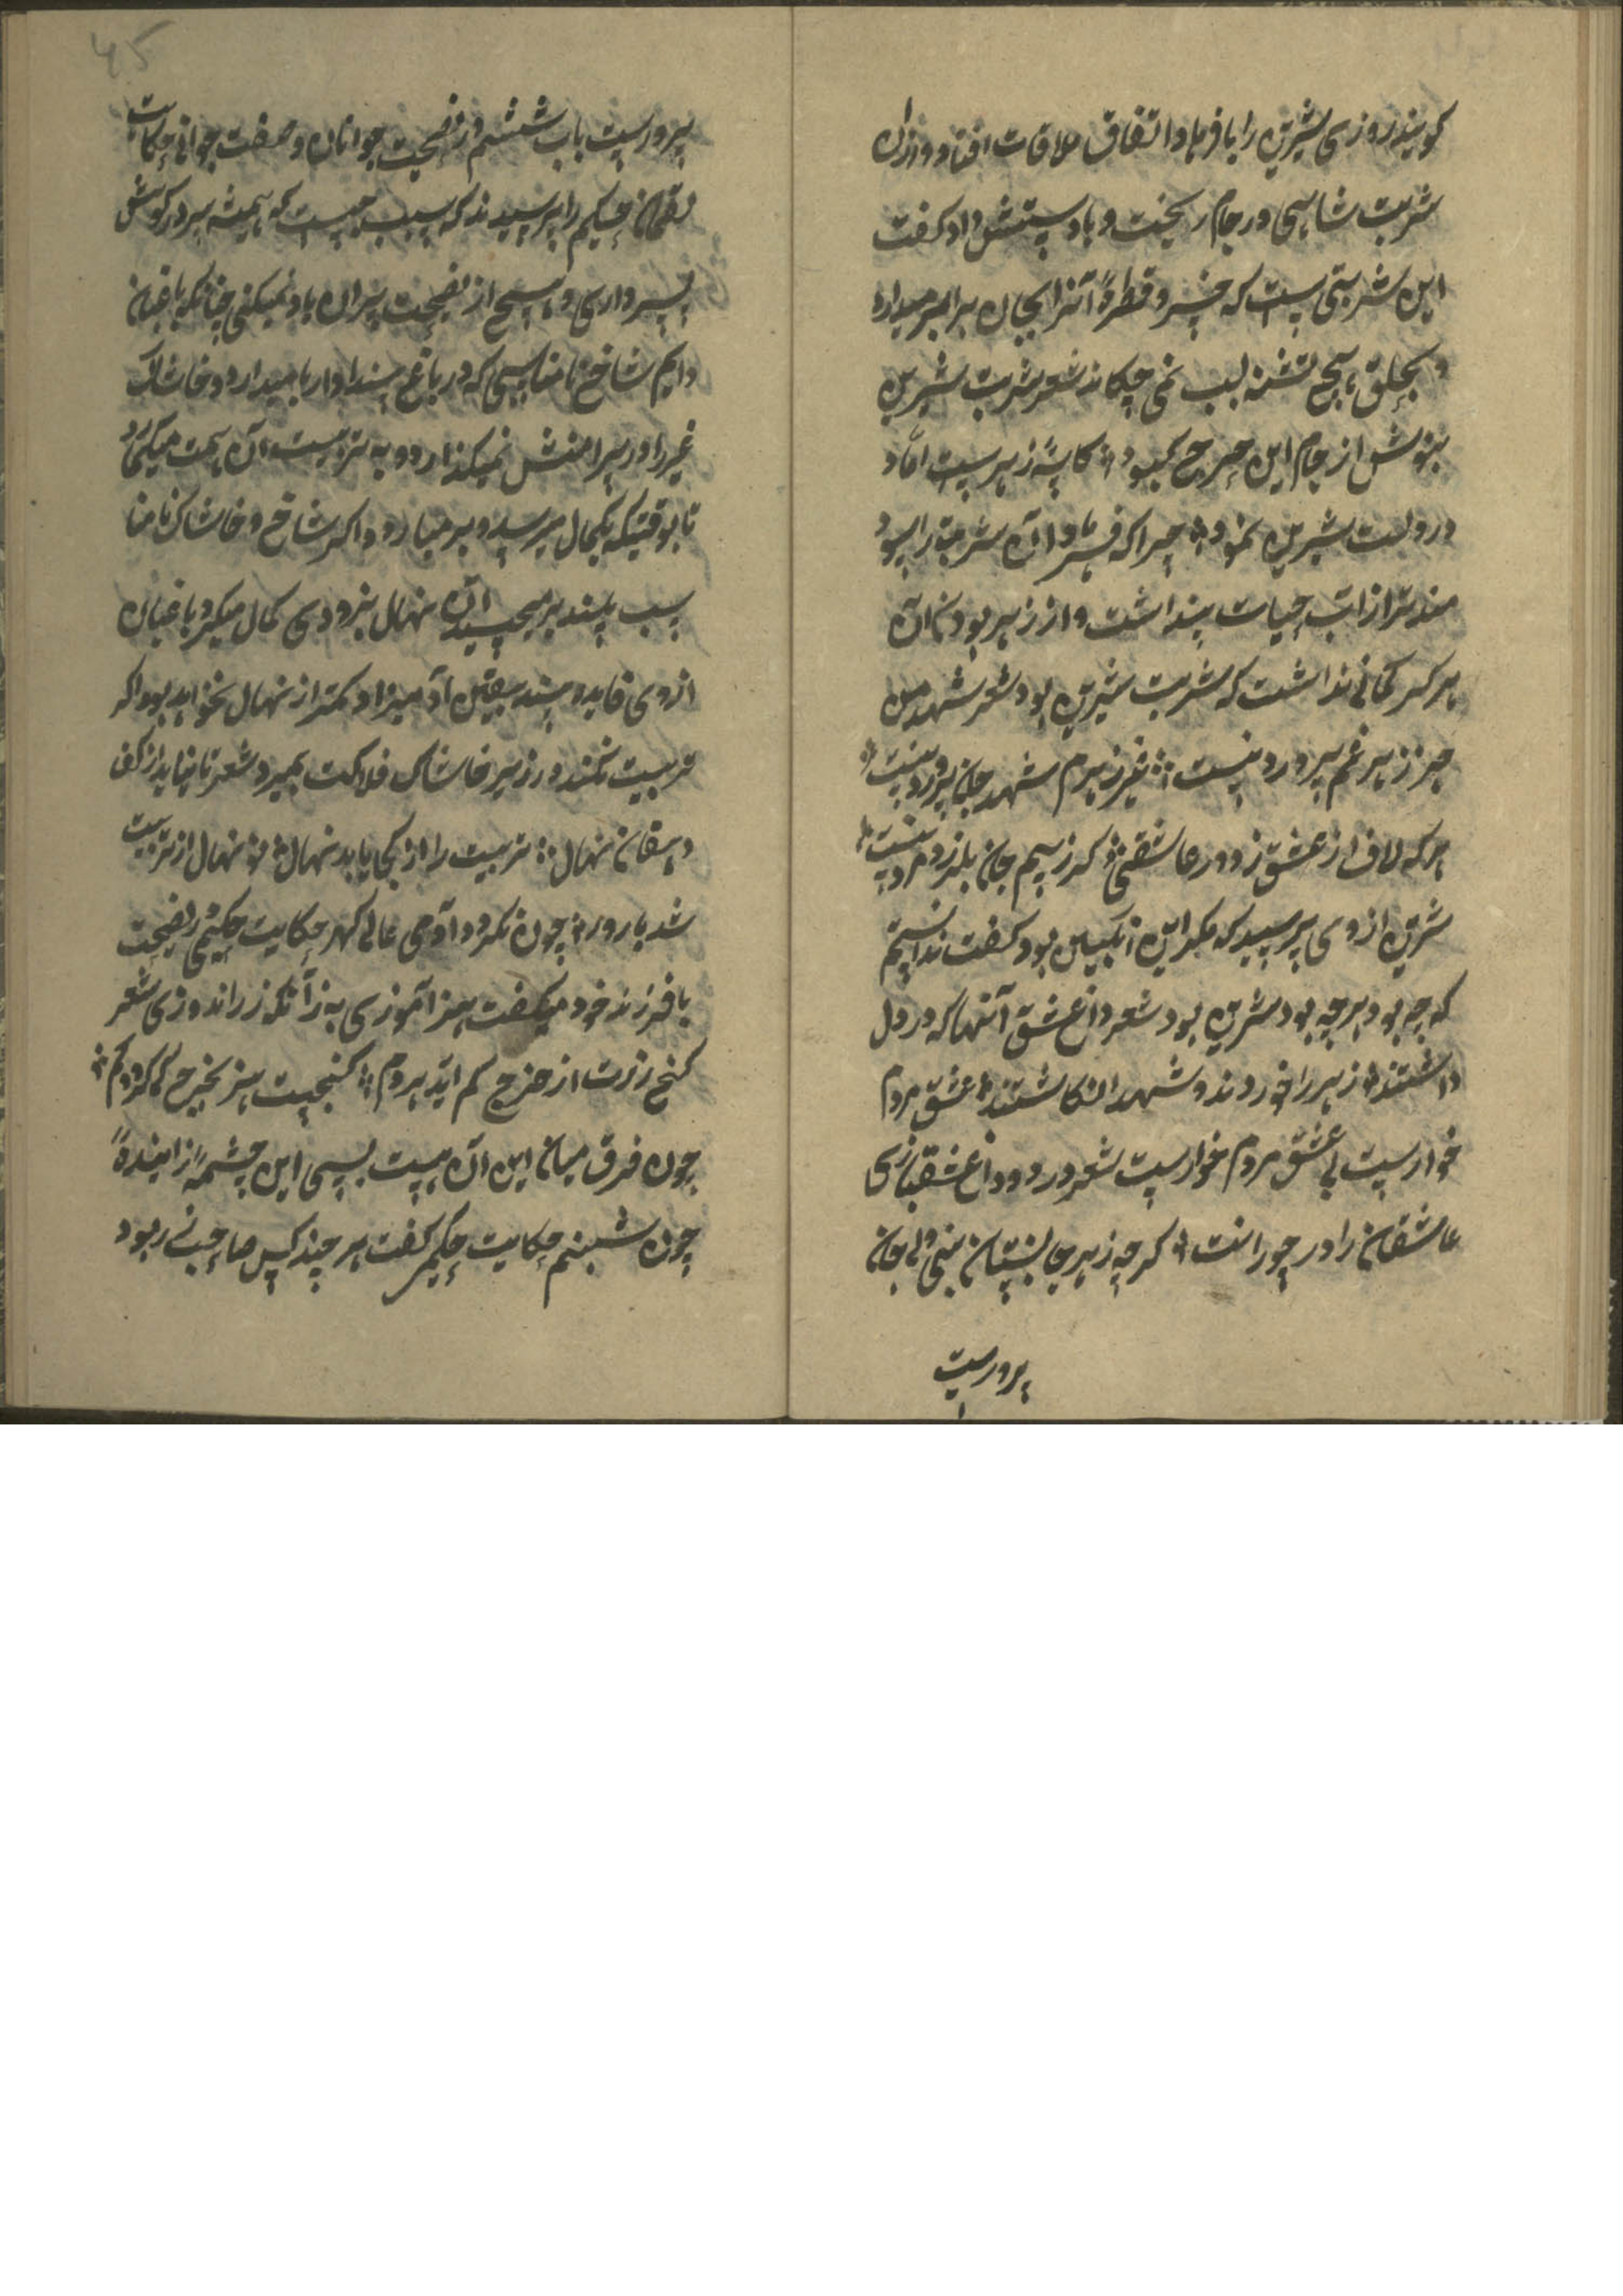 کویند روزی شیرین را با فرهاد اتفاق ملاقات افتاد و از ان
شربت شاهی در جام ریخت و بادستش داد کفت
این شربتی است که خسرو قطرهٔ آنرا بجان برابر میدارد
و بحلق هیچ تشنه لب نمی چکاند شعر شربت شیرین
بنوش از جام این چرخ کبود کاسهٔ زهرست اما
درولت شیرین نمود چرا که فرهاد آن شربت را سود
مند تر از آب حیات پنداشت و از زهر بودن آن
هرکز کمانی نداشت که شربت شیرین بود شعر شهد من
جز زهر غم پرورد نیست غیر زهرم شهد جان پرورد نیست
هرکه لاف از عشق زد در عاشقی کر ز بیم جان بلرزد مرد نیست
شیرین از وی پرسید که مکر این انکبین بود کفت ندانستم
که چه بود هرچه بود شیرین بود شعر داغ عشق آنها که در دل
داشتند زهر را خوردند و شهد انکاشتند عشق مردم
خوارست بی عشق مردم خوارست شعر درد و داغ عشقبازی
عاشقان را در خورانت کرچه زهر جانستان بینی ولی جان
پرورست
45
پرورست باب ششم در نصیحت جوانان و صفت جوانی حکایت
لقمان حکیم را پرسیدند که سبب چیست که همیشه سر در کوش
پسر داری و هیچ از نصیحت پیران یاد نمیکنی چنانکه باغبان
دایم شاخ نامناسبی که در باغ بیند او را با میدارد و خاشاک
غیر را در پیرامنش نمیکذارد و به تربیت آن همت میکمارد
تا بوقتیکه بکمال میرسد و بر میارد و اکر شاخ و خاشاک نامنا
سب بلند بر میچسپد آن نهال بزودی کمال میکیرد باغبان
از وی فایده بیند یقین آدمیزاد کمتر از نهال نخواهد بود اکر
تربیت نکنند در زیر خاشاک فلاکت بمیرد شعر تا نیاید از کف
دهقان نهال تربیت را از کجا یابد نهال نو نهال از تربیت
شد بارور چون نکردد آدمی عالی کهر حکایت حکیمی نصیحت
با فرزند خود میکفت هنر آموزی به ز آنکه زر اندوزی شعر
کنج زرت از خرج کم اید بر دم کنجیست هنر بخرج کی کردد کم
چون فرق میان این آن هست بسی این چشمهٔ زایندهٔ
چون شبنم حکایت حکیم کفت هر چند کس صاحب ربود